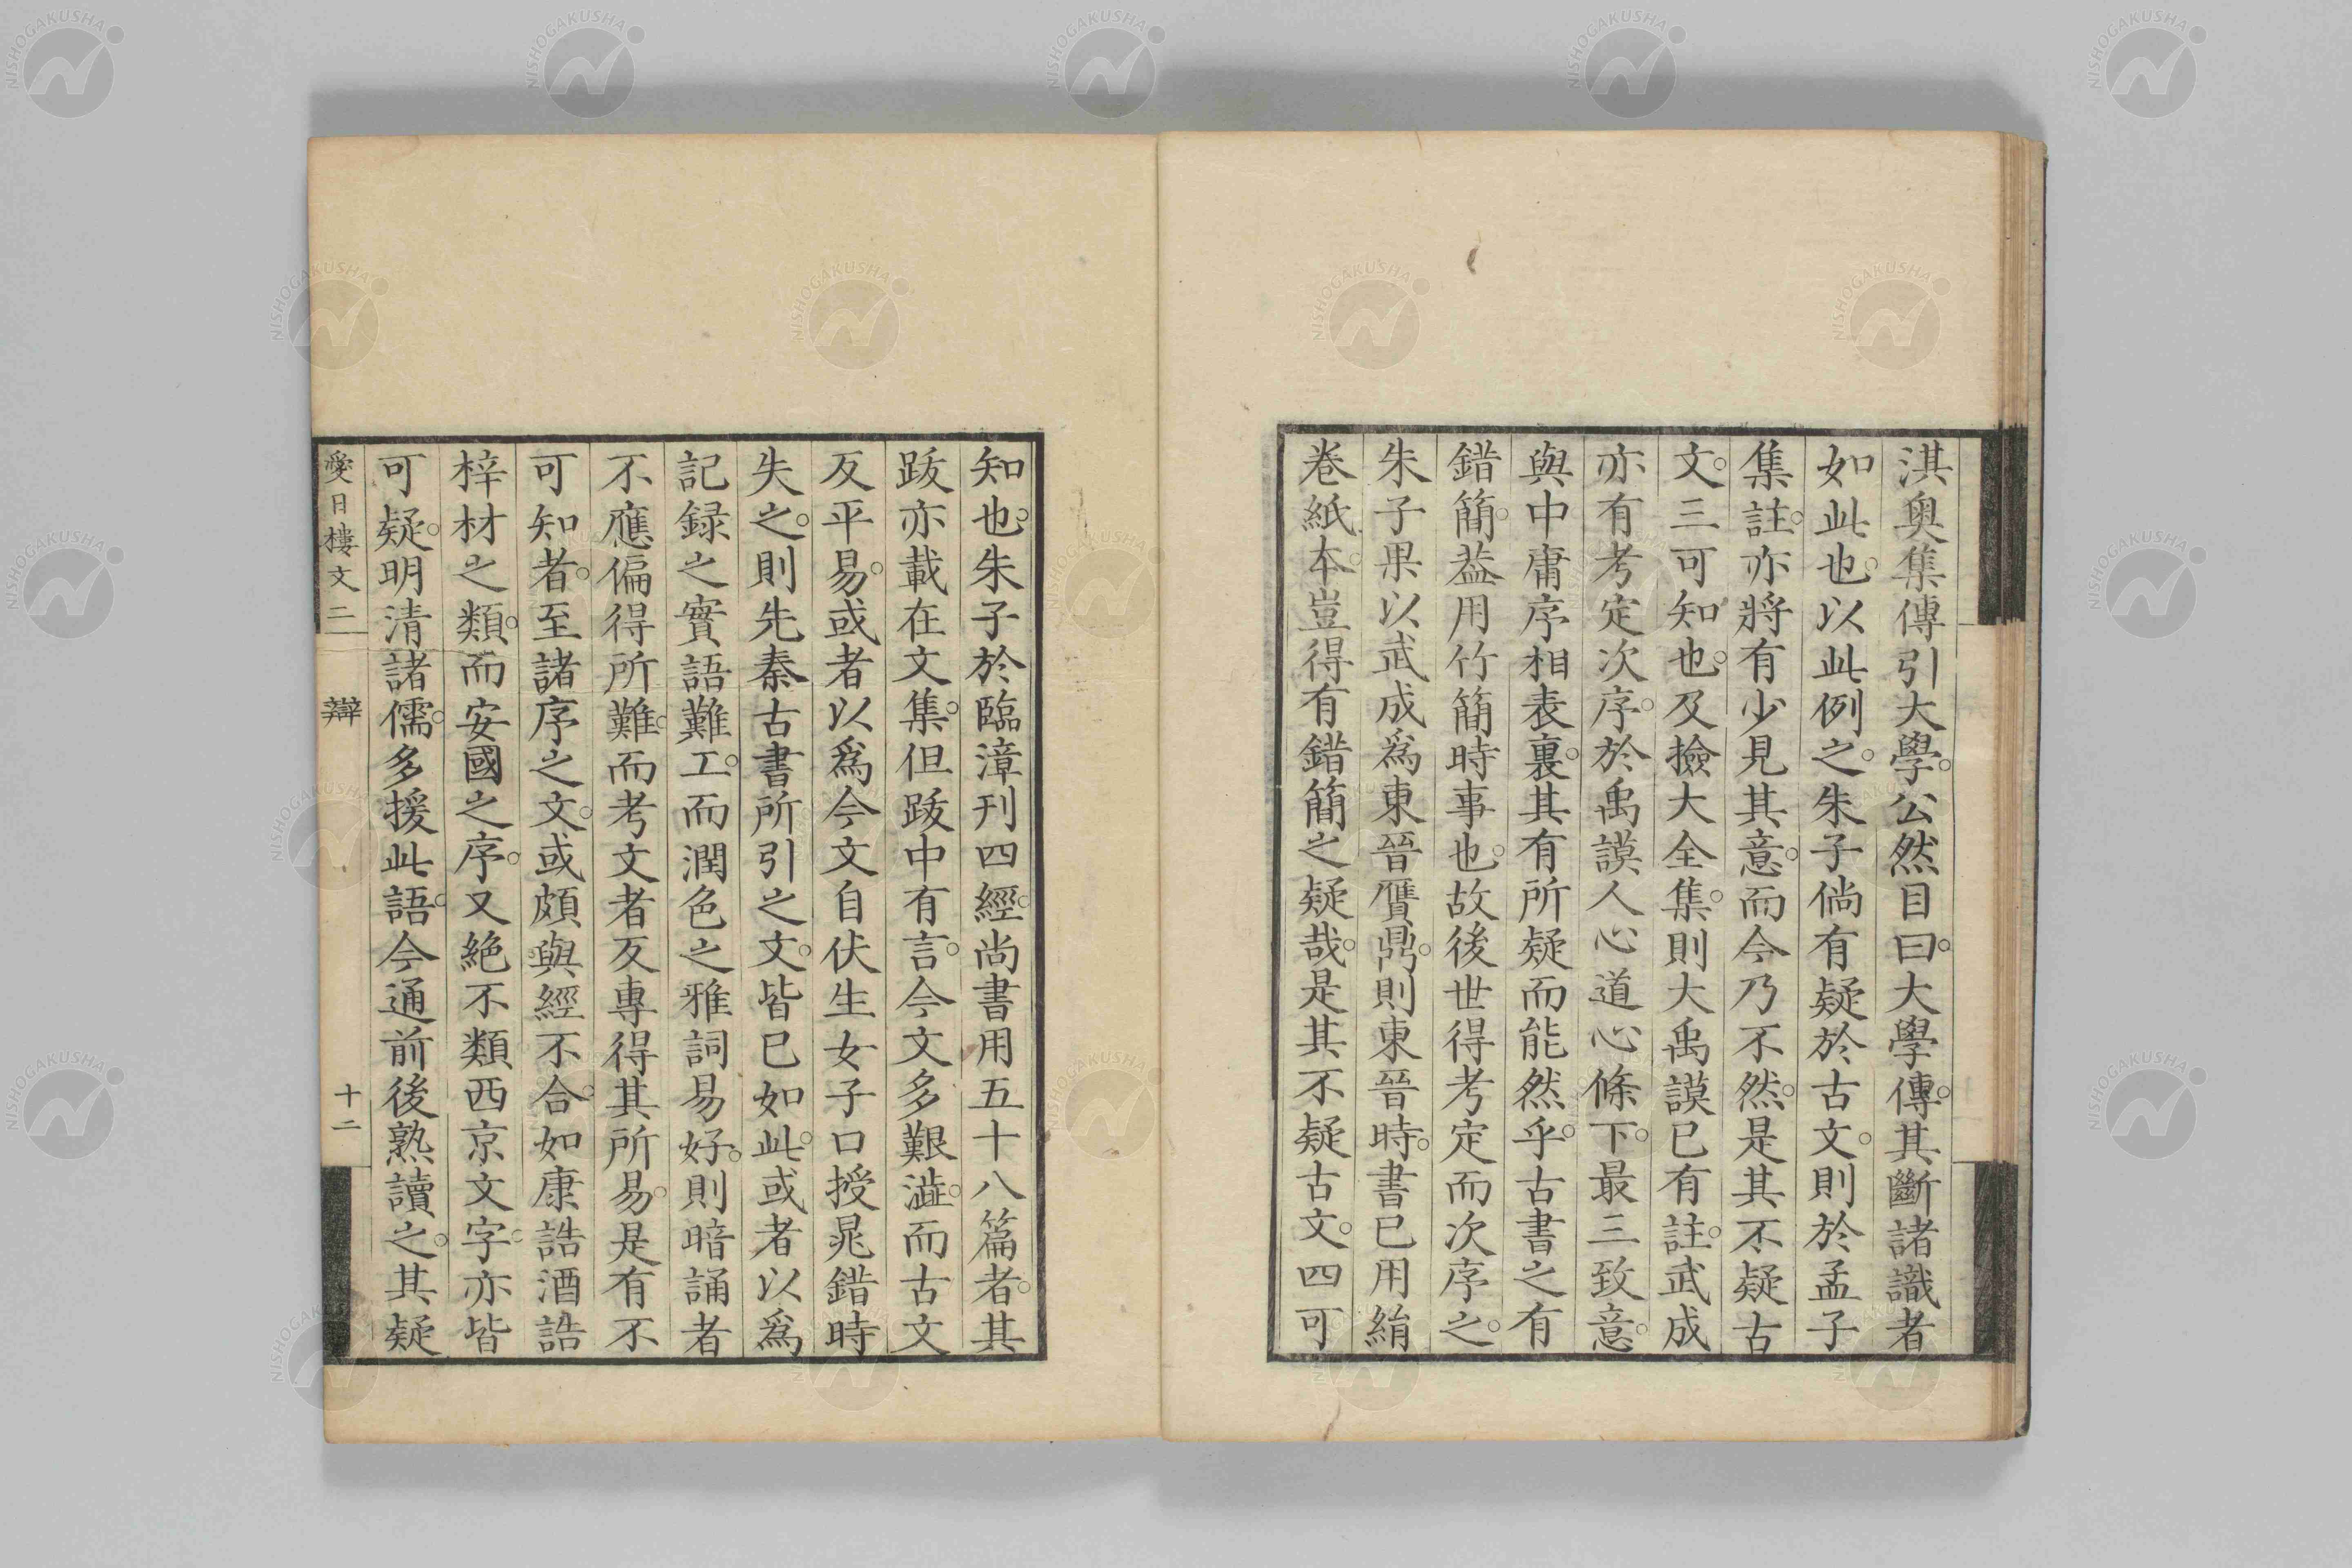 淇奧集傳引大學。公然目曰。大學傳。其斷諸識者
如此也。以此例之。朱子倘有疑於古文。則於孟子
集註。亦將有少見其意。而今乃不然。是其不疑古
文。三可知也。及撿大全集。則大禹謨已有註。武成
亦有考定次序。於禹謨人心道心條下。最三致意。
與中庸序相表裏。其有所疑而能然乎。古書之有
錯簡。葢用竹簡時事也。故後世得考定而次序之。
朱子果以武成爲東晉贋鼎。則東晉時。書已用絹
卷紙本。豈得有錯簡之疑哉。是其不疑古文。四可
知也。朱子於臨漳刊四經。尚書用五十八篇者。其
跋亦載在文集。但跋中有言。今文多艱澁。而古文
反平易。或者以爲今文自伏生女子口授晁錯時
失之。則先秦古書所引之文。皆已如此。或者以爲
記録之實語難工。而潤色之雅詞易好。則暗誦者
不應偏得所難。而考文者反專得其所易。是有不
可知者。至諸序之文。或頗與經不合。如康誥酒誥
梓材之類。而安國之序。又絶不類西京文字。亦皆
可疑。明清諸儒。多援此語。今通前後熟讀之。其疑
愛日樓文二 辯 十二
NISHOGAKUSHA